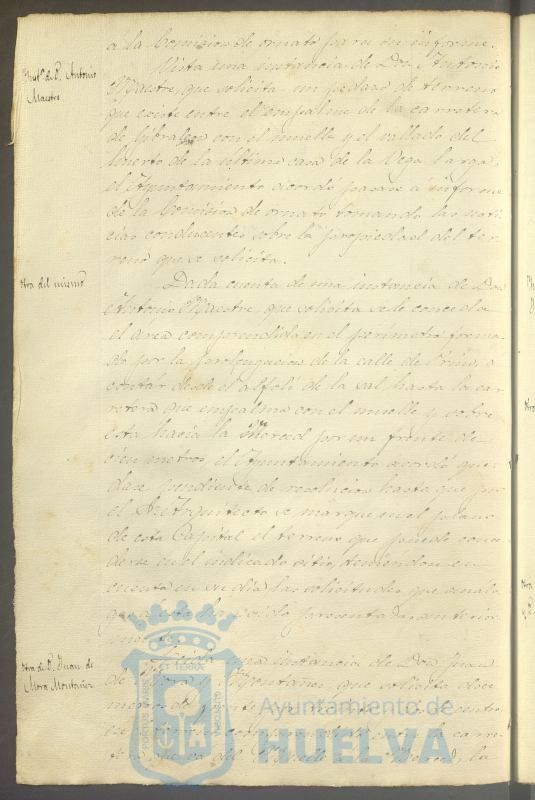 á la Comision de ornato para su informe.
Inst.ª de D. Antonio
Maestre
Vista una instancia de Don Antonio
Maestre, que solicita un pedazo de terreno
que existe entre el empalme de la carretera
de Gibraleon con el muelle y el vallado del
huerto de la última casa de la Vega larga,
el Ayuntamiento acordó pasase á informe
de la Comision de ornato tomando las noti
cias conducentes sobre la propiedad del ter
reno que se solicita.
Otra del mismo
Dada cuenta de una instancia de Don
Antonio Maestre, que solicita se le conceda
el area comprendida en el perimetro forma
do por la prolongacion de la calle de
contar desde el alfolí de la sal hasta la car
retera que empalma con el muelle y sobre
esta hacia la Merced por un frente de
cien metros el Ayuntamiento acordó que
dase pendiente de resolucion hasta que por
el Arquitecto se marque en el plano
de esta Capital el terreno que puede conce
derse en el indicado sitio, teniendo en
cuenta en su dia las solicitudes que
presentado anterior
mente.
Otra de D. Juan de
Mora Montañez
una instancia de Don Juan
de Mora y Montañez, que solicita doce
metros de frente
en
tera que va del Muelle á la Merced, la
PORTUS MARIS
ET TERRAE
CUSTODIA
Ayuntamiento de
HUELVA